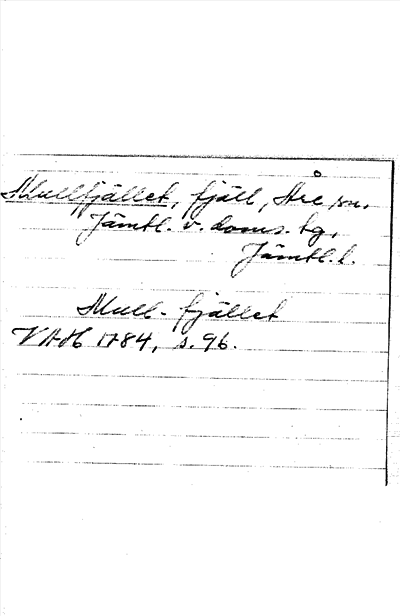 Mullfjället, fjäll, Åre sn.
Jämtl. v. doms. tg,
Jämtl. l.
Mull-fjället
VAH 1784, s. 96.